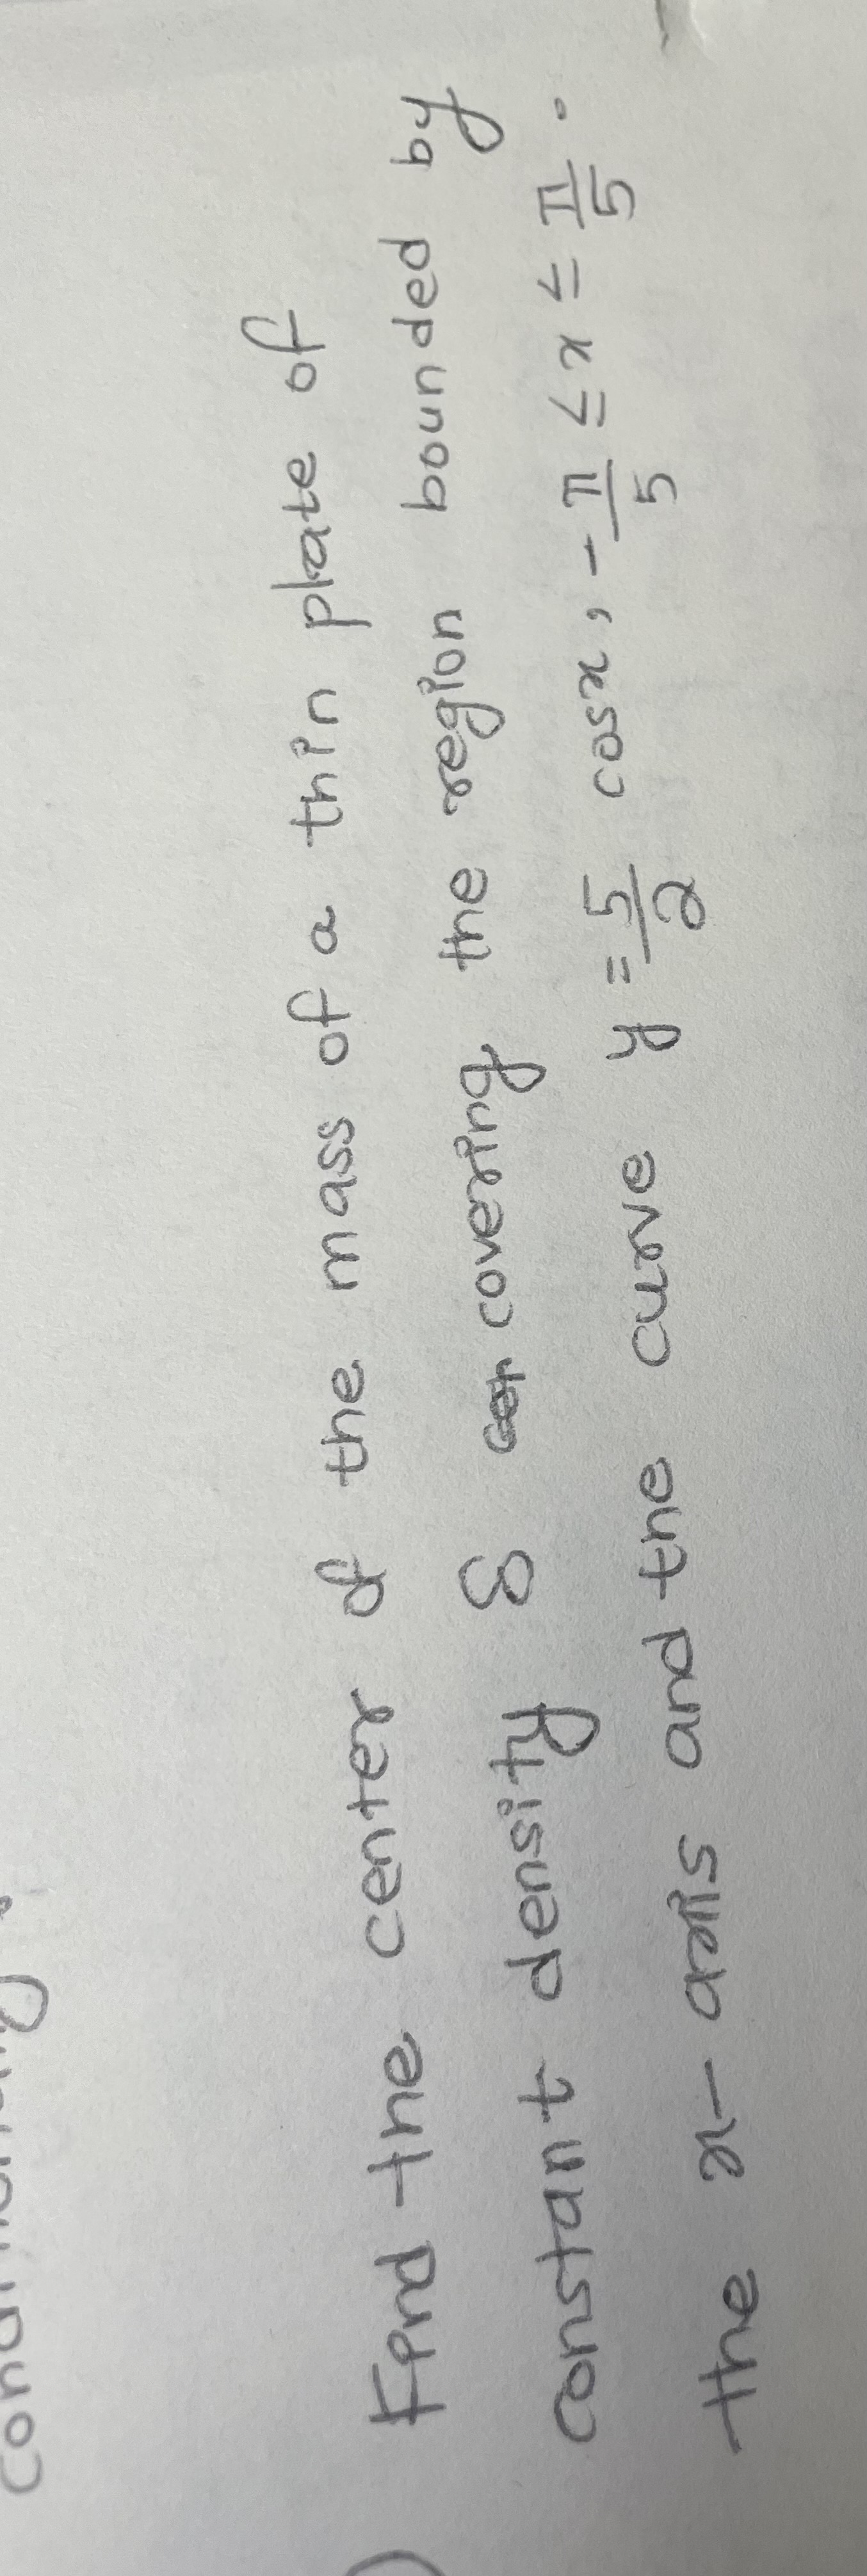 Find the center of the mass of a thin plate of
constant density δ covering the region bounded by
the x-axis and the curve y = 5/2 cosx, -π/5 ≤ x ≤ π/5.